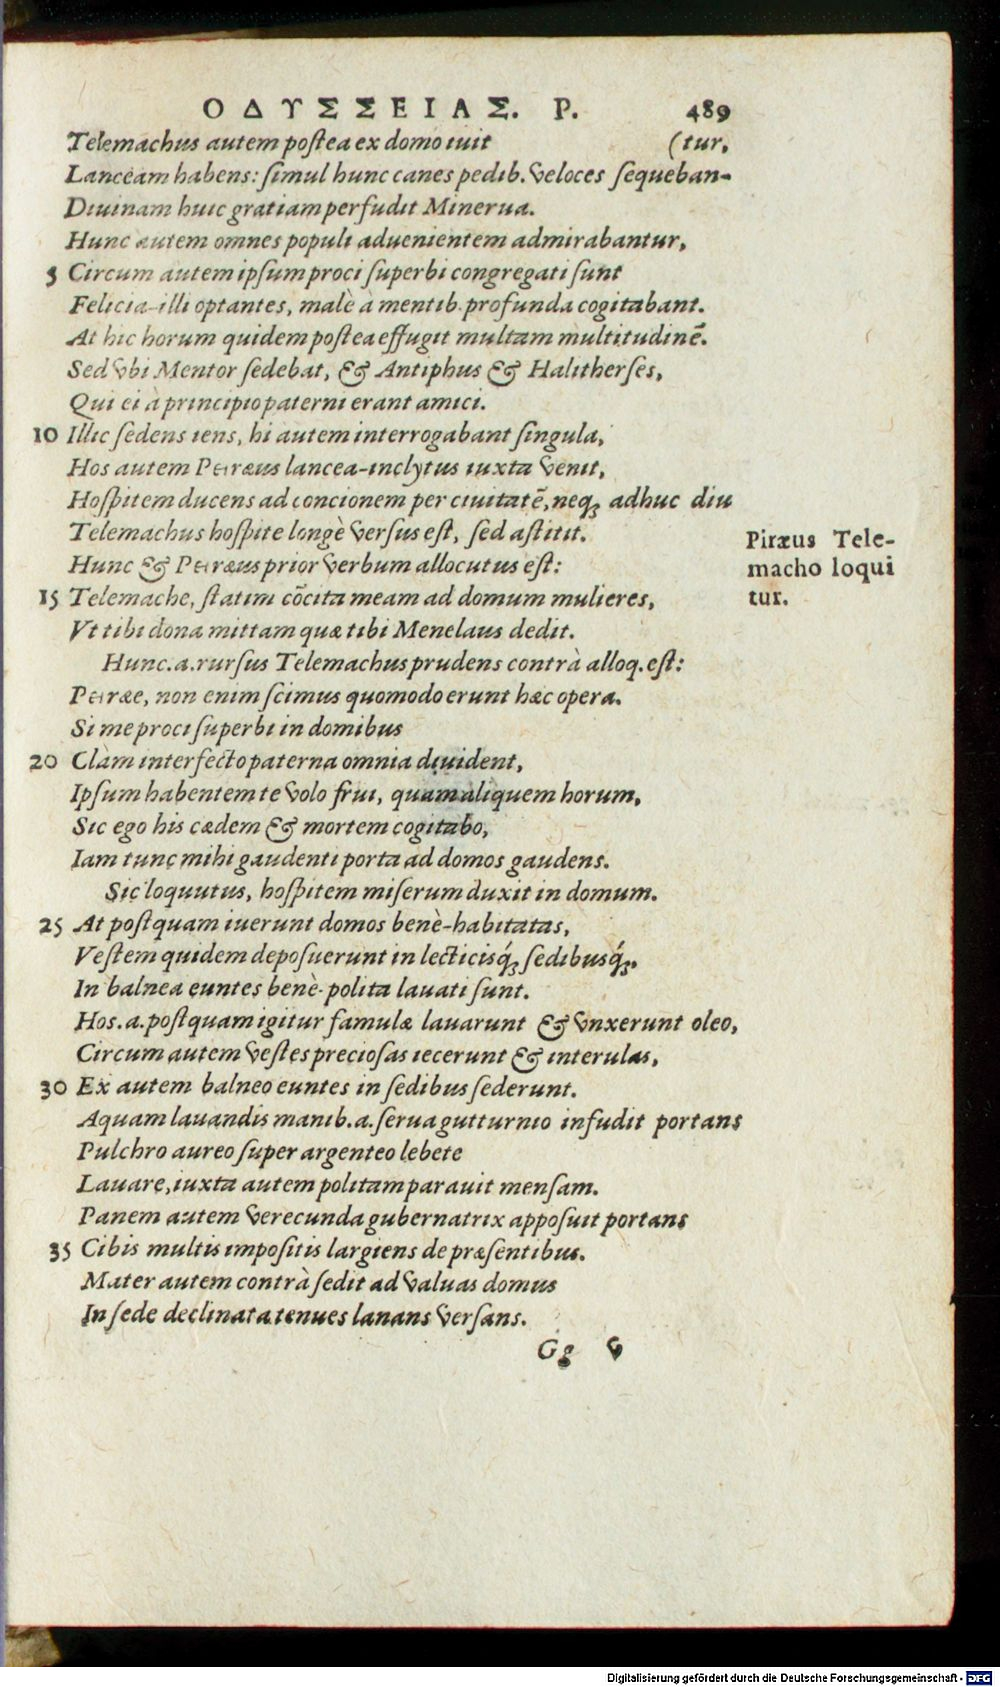 ΟΔΥΣΣΕΙΑΣ. Ρ. 489
Telemachus autem postea ex domo iuit (tur,
Lanceam habens: simul hunc canes pedib. veloces sequeban-
Diuinam huic gratiam perfudit Minerua.
Hunc autem omnes populi aduenientem admirabantur,
5 Circum autem ipsum proci superbi congregati sunt
Felicia-illi optantes, malè à mentib. profunda cogitabant.
At hic horum quidem postea effugit multam multitudinē.
Sed vbi Mentor sedebat, & Antiphus & Halitherses,
Qui ei à principio paterni erant amici.
10 Illic sedens iens, hi autem interrogabant singula,
Hos autem Peiræus lancea-inclytus iuxta venit,
Hospitem ducens ad concionem per ciuitatē, neq; adhuc diu
Telemachus hospite longè versus est, sed astitit.
Hunc & Peiræus prior verbum allocutus est:
Piræus Tele-
macho loqui
tur.
15 Telemache, statim cōcita meam ad domum mulieres,
Vt tibi dona mittam quæ tibi Menelaus dedit.
Hunc.a.rursus Telemachus prudens contrà alloq. est:
Peiræe, non enim scimus quomodo erunt hæc opera.
Si me proci superbi in domibus
20 Clàm interfecto paterna omnia diuident,
Ipsum habentem te volo frui, quam aliquem horum,
Sic ego his cædem & mortem cogitabo,
Iam tunc mihi gaudenti porta ad domos gaudens.
Sic loquutus, hospitem miserum duxit in domum.
25 At postquam iuerunt domos benè-habitatas,
Vestem quidem deposuerunt in lecticisq́; sedibusq́;.
In balnea euntes benè-polita lauati sunt.
Hos.a.postquam igitur famulæ lauarunt & vnxerunt oleo,
Circum autem vestes preciosas iecerunt & interulas,
30 Ex autem balneo euntes in sedibus sederunt.
Aquam lauandis manib.a.serua gutturnio infudit portans
Pulchro aureo super argenteo lebete
Lauare, iuxta autem politam parauit mensam.
Panem autem verecunda gubernatrix apposuit portans
35 Cibis multis impositis largiens de præsentibus.
Mater autem contrà sedit ad valuas domus
In sede declinata tenues lanans versans.
Gg v
Digitalisierung gefördert durch die Deutsche Forschungsgemeinschaft - DFG